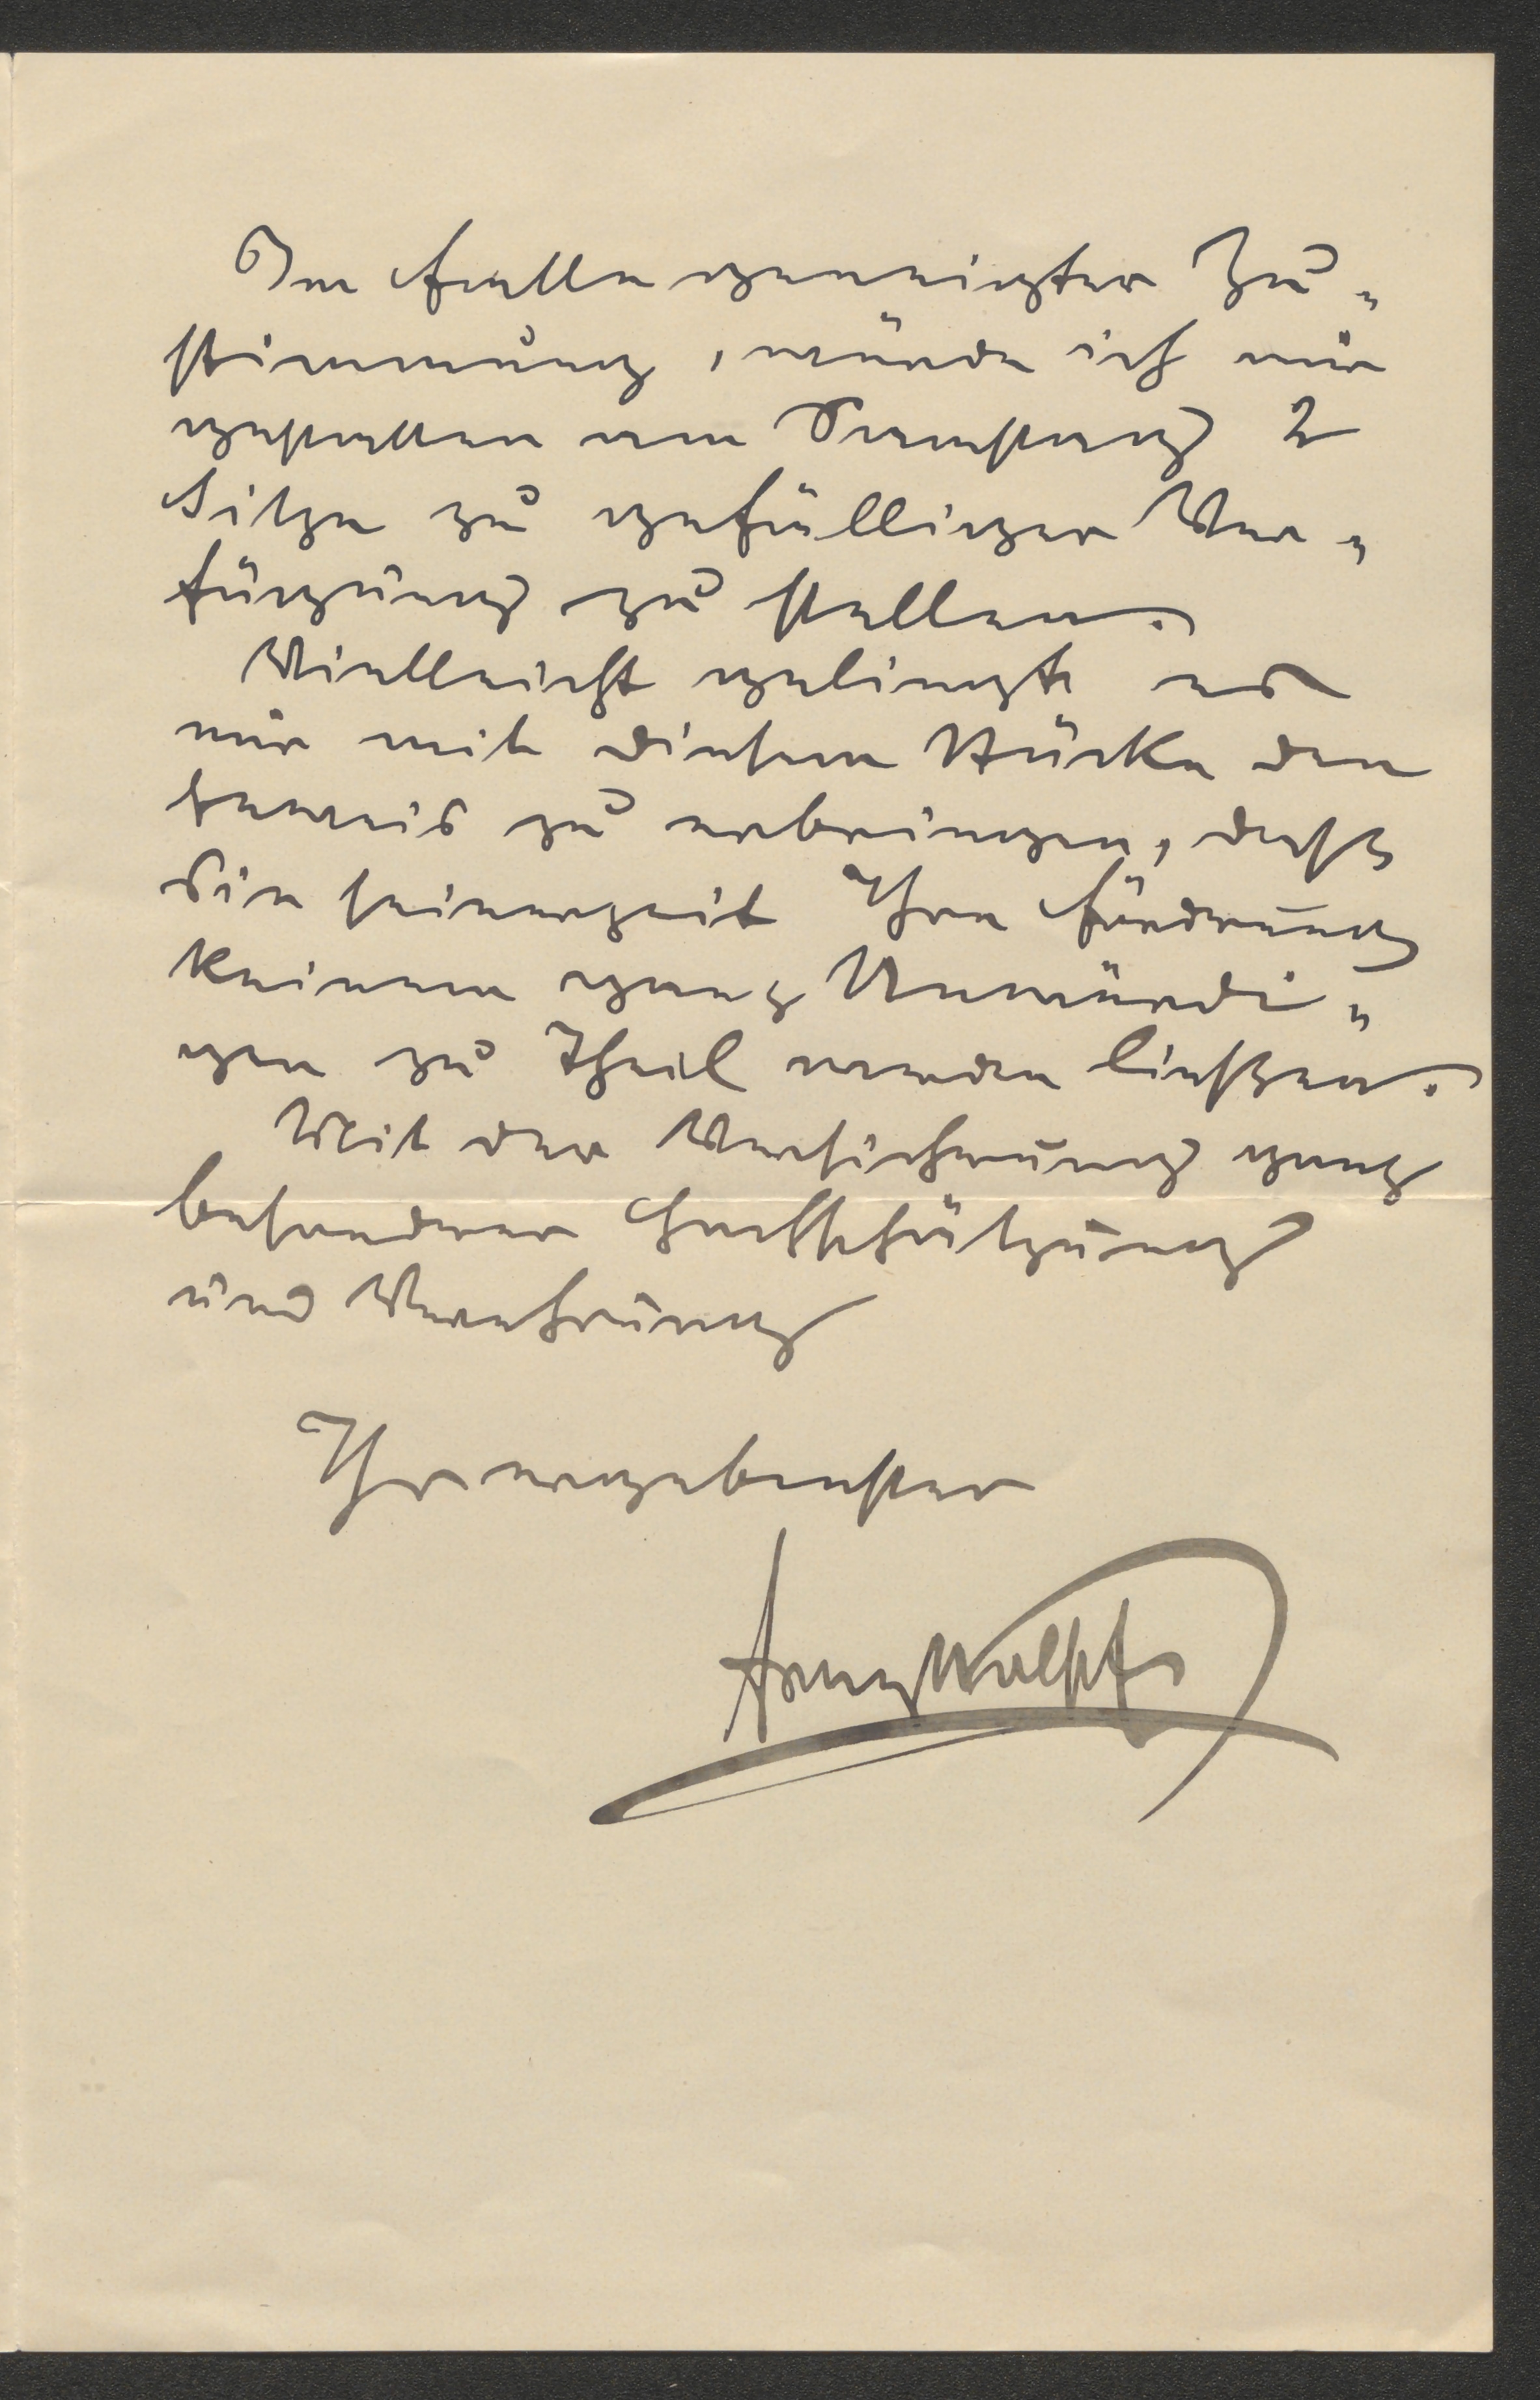 Im Falle geneigter Zu„
stimmung, würde ich mir
gestatten am Samstag 2
Sitze zu gefälliger Ver„
fügung zu stellen.
Vielleicht gelingt es
mir mit diesem Stücke den
Beweis zu erbringen, daß
Sie seinerzeit Ihre Förderung
keinem ganz Unwürdi„
gen zu Theil werden ließen.
Mit der Versicherung ganz
besonderer Hochschätzung
und Verehrung
Ihr ergebenster
Franz Wolff